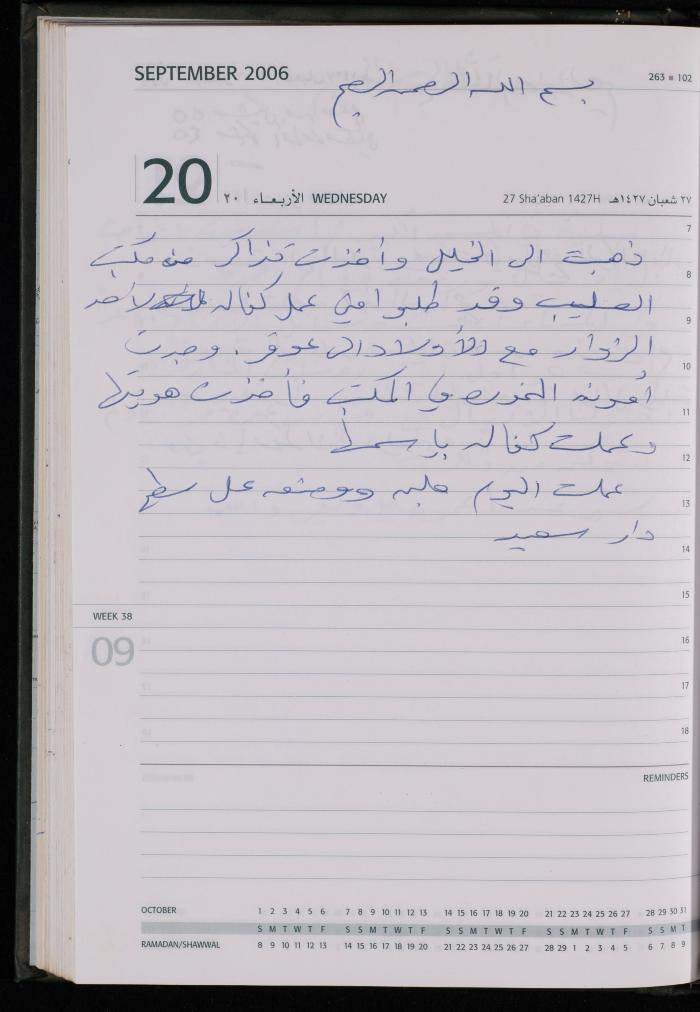 SEPTEMBER 2006
263 ■ 102
بسم الله الرحمن الرحيم
20 ٢٠ الأربعاء WEDNESDAY 27 Sha'aban 1427H ٢٧ شعبان ١٤٢٧هـ
7
ذهبت الى الخليل وأخذت تذاكر من مكتب
8
الصليب وقد طلبوا مني عمل كفاله لأحد
9
الزوار مع الأولاد الى عوفر. وجدت
10
في المكتب فأخذت هويتها
11
وعملت كفاله باسمها
12
عملت اليوم ووضعه على سطح
13
دار سعيد
14
15
WEEK 38
09
16
17
18
REMINDERS
OCTOBER 1 2 3 4 5 6 7 8 9 10 11 12 13 14 15 16 17 18 19 20 21 22 23 24 25 26 27 28 29 30 31
S M T W T F S S M T W T F S S M T W T F S S M T W T F S S M T
RAMADAN/SHAWWAL 8 9 10 11 12 13 14 15 16 17 18 19 20 21 22 23 24 25 26 27 28 29 1 2 3 4 5 6 7 8 9